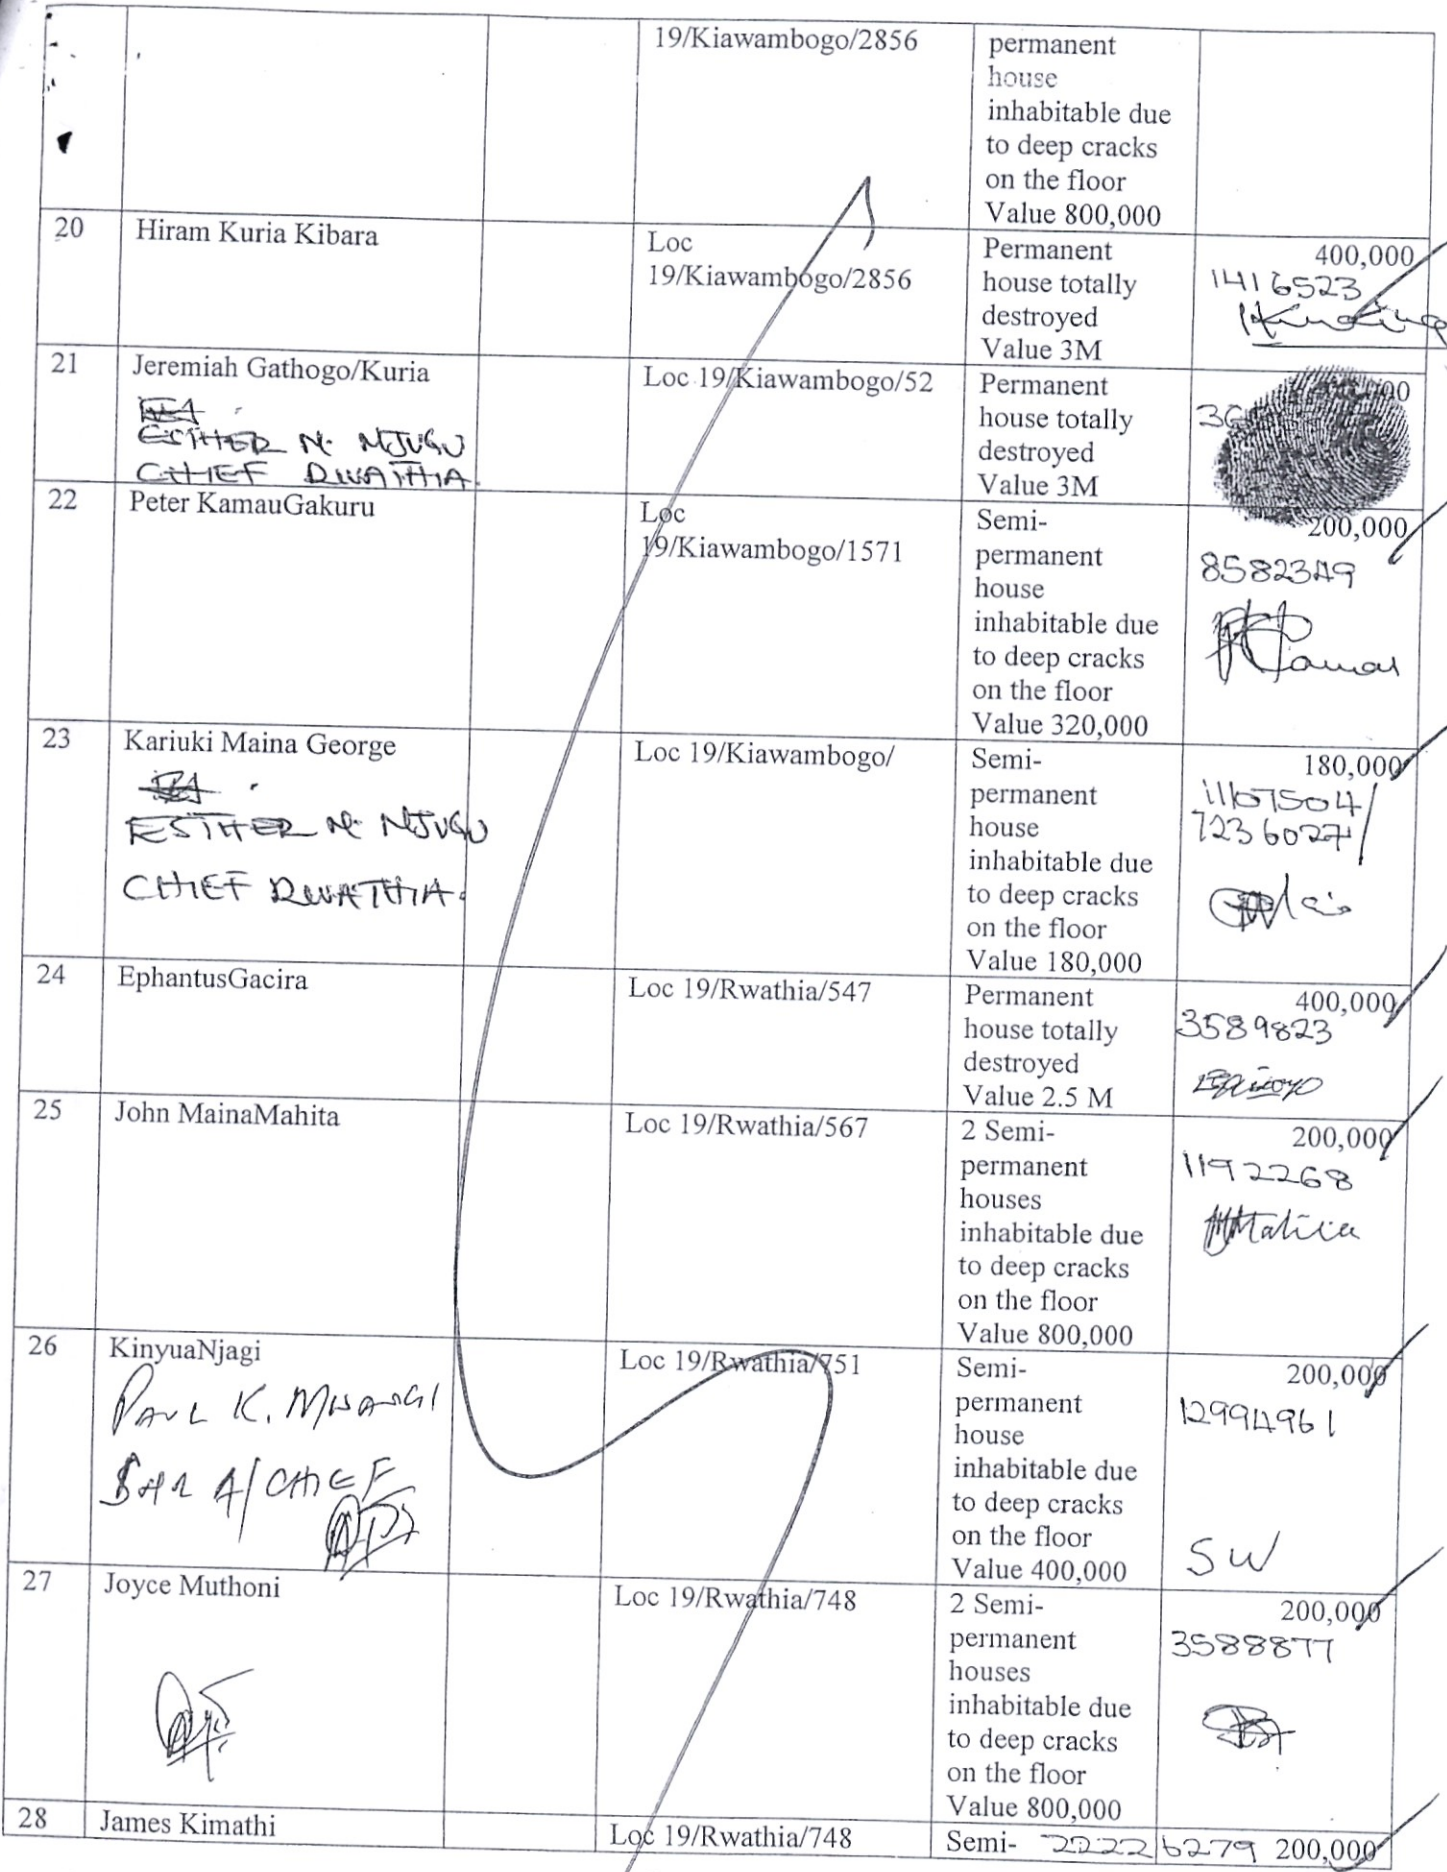 19/Kiawambogo/2856
permanent
house
inhabitable due
to deep cracks
on the floor
Value 800,000
20
Hiram Kuria Kibara
Loc
19/Kiawambogo/2856
Permanent
house totally
destroyed
Value 3M
400,000
1416523
21
Jeremiah Gathogo/Kuria
ESTHER N. NJUGU
CHIEF RWATHIA.
Loc 19/Kiawambogo/52
Permanent
house totally
destroyed
Value 3M
22
Peter KamauGakuru
Loc
19/Kiawambogo/1571
Semi-
permanent
house
inhabitable due
to deep cracks
on the floor
Value 320,000
200,000
8582349
23
Kariuki Maina George
ESTHER N. NJUGU
CHIEF RWATHIA.
Loc 19/Kiawambogo/
Semi-
permanent
house
inhabitable due
to deep cracks
on the floor
Value 180,000
180,000
11167504/
7236027/
24
EphantusGacira
Loc 19/Rwathia/547
Permanent
house totally
destroyed
Value 2.5 M
400,000
3589823
25
John MainaMahita
Loc 19/Rwathia/567
2 Semi-
permanent
houses
inhabitable due
to deep cracks
on the floor
Value 800,000
200,000
1192268
26
KinyuaNjagi
PAUL K. MWANGI
A/CHIEF
Loc 19/Rwathia/751
Semi-
permanent
house
inhabitable due
to deep cracks
on the floor
Value 400,000
200,000
12994961
SW
27
Joyce Muthoni
Loc 19/Rwathia/748
2 Semi-
permanent
houses
inhabitable due
to deep cracks
on the floor
Value 800,000
200,000
3588877
28
James Kimathi
Loc 19/Rwathia/748
Semi-
22226279
200,000